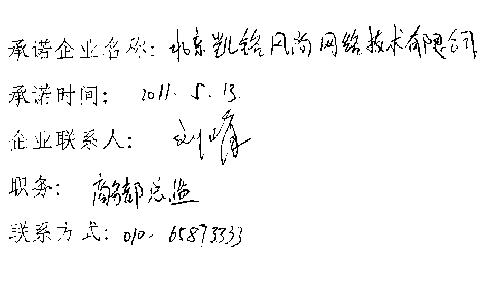 承诺企业名称：北京凯铭风尚网络技术有限公司
承诺时间：2011.5.13.
企业联系人：刘峰
职务：商务部总监
联系方式：010.65873333